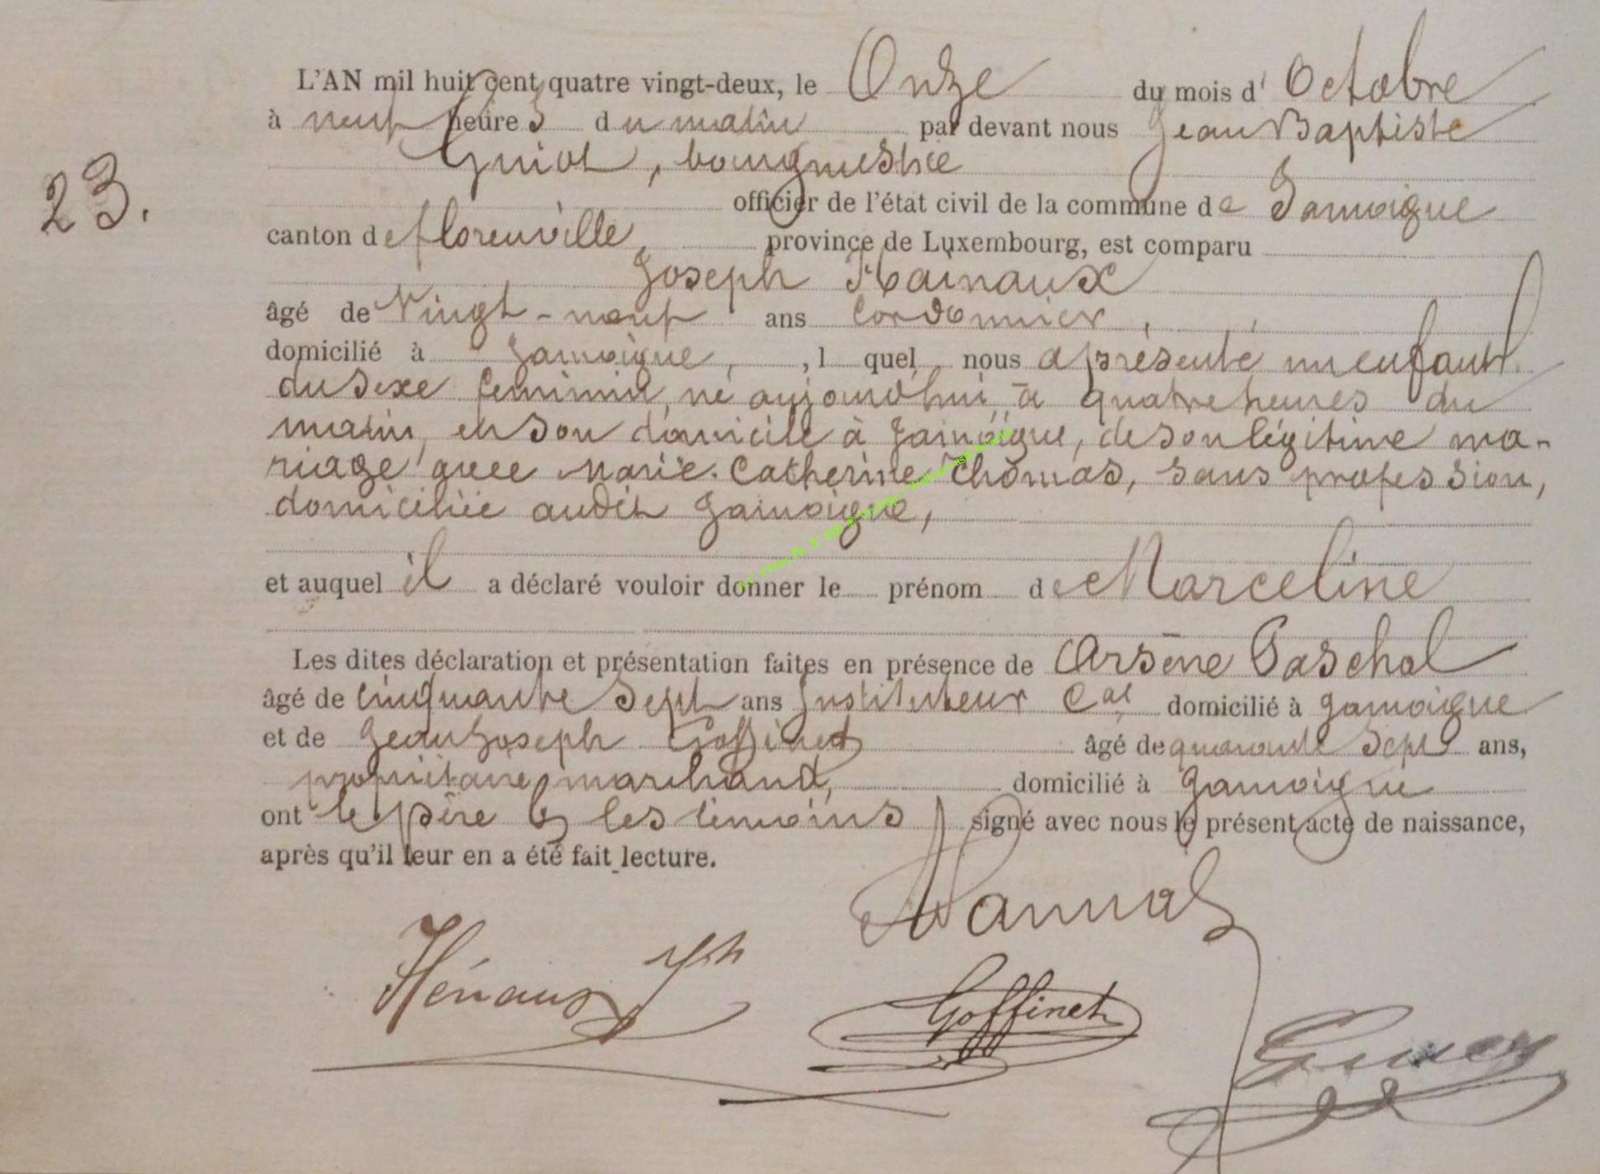 L'AN mil huit cent quatre vingt-deux, le Onze du mois d' Octobre
à neuf heures du matin par devant nous Jean Baptiste
Guiot, bourgmestre
officier de l'état civil de la commune de Jamoigne
23.
canton de florenville, province de Luxembourg, est comparu
Joseph Hainaux
âgé de Vingt-neuf ans cordonnier,
domicilié à Jamoigne, , l quel nous a présenté un enfant
du sexe féminin, né aujourd'hui, à quatre heures du
matin, en son domicile à Jamoigne, de son légitime ma-
riage avec Marie Catherine Thomas, sans profession,
domiciliée audit Jamoigne,
et auquel il a déclaré vouloir donner le prénom de Marceline
Les dites déclaration et présentation faites en présence de Arsène Paschal
âgé de cinquante sept ans Instituteur Cal domicilié à Jamoigne
et de Jean Joseph Goffinet âgé de quarante sept ans,
propriétaire marchand, domicilié à Jamoigne
ont le père & les témoins signé avec nous le présent acte de naissance,
après qu'il leur en a été fait lecture.
Hénaux Jph
Goffinet